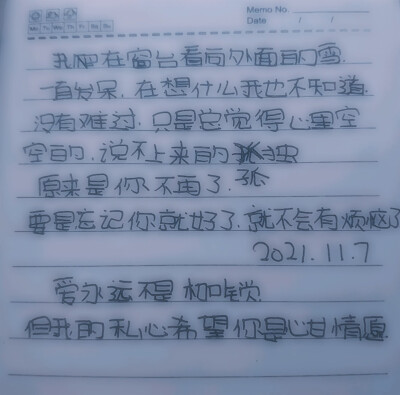 Memo No.
Date / /
Mo Tu We Th Fr Sa Su
我爬在窗台看向外面的雪
一直发呆.在想什么我也不知道.
没有难过.只是总觉得心里空
空的.说不上来的孤独
孤
原来是你不再了.
要是忘记你就好了.就不会有烦恼了
2021.11.7
爱永远不是枷锁
但我的私心希望你是心甘情愿